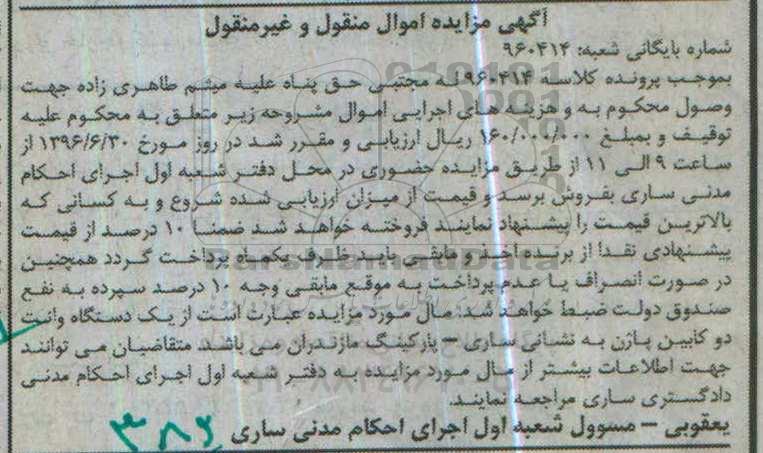 آگهی مزایده اموال منقول و غیرمنقول
شماره بایگانی شعبه: ۹۶۰۴۱۴
بموجب پرونده کلاسه ۹۶۰۴۱۴ له مجتبی حق پناه علیه میثم طاهری زاده جهت
وصول محکوم به و هزینه های اجرایی اموال مشروحه زیر متعلق به محکوم علیه
توقیف و بمبلغ ۱۶۰/۰۰۰/۰۰۰ ریال ارزیابی و مقرر شد در روز مورخ ۱۳۹۶/۶/۳۰ از
ساعت ۹ الی ۱۱ از طریق مزایده حضوری در محل دفتر شعبه اول اجرای احکام
مدنی ساری بفروش برسد و قیمت از میزان ارزیابی شده شروع و به کسانی که
بالاترین قیمت را پیشنهاد نمایند فروخته خواهد شد ضمنا ۱۰ درصد از قیمت
پیشنهادی نقدا از برنده اخذ و مابقی باید ظرف یکماه پرداخت گردد همچنین
در صورت انصراف یا عدم پرداخت به موقع مابقی وجه ۱۰ درصد سپرده به نفع
صندوق دولت ضبط خواهد شد. مال مورد مزایده عبارت است از یک دستگاه وانت
دو کابین پازن به نشانی ساری – پارکینگ مازندران می باشد متقاضیان می توانند
جهت اطلاعات بیشتر از مال مورد مزایده به دفتر شعبه اول اجرای احکام مدنی
دادگستری ساری مراجعه نمایند.
یعقوبی – مسوول شعبه اول اجرای احکام مدنی ساری
ParsNamadData